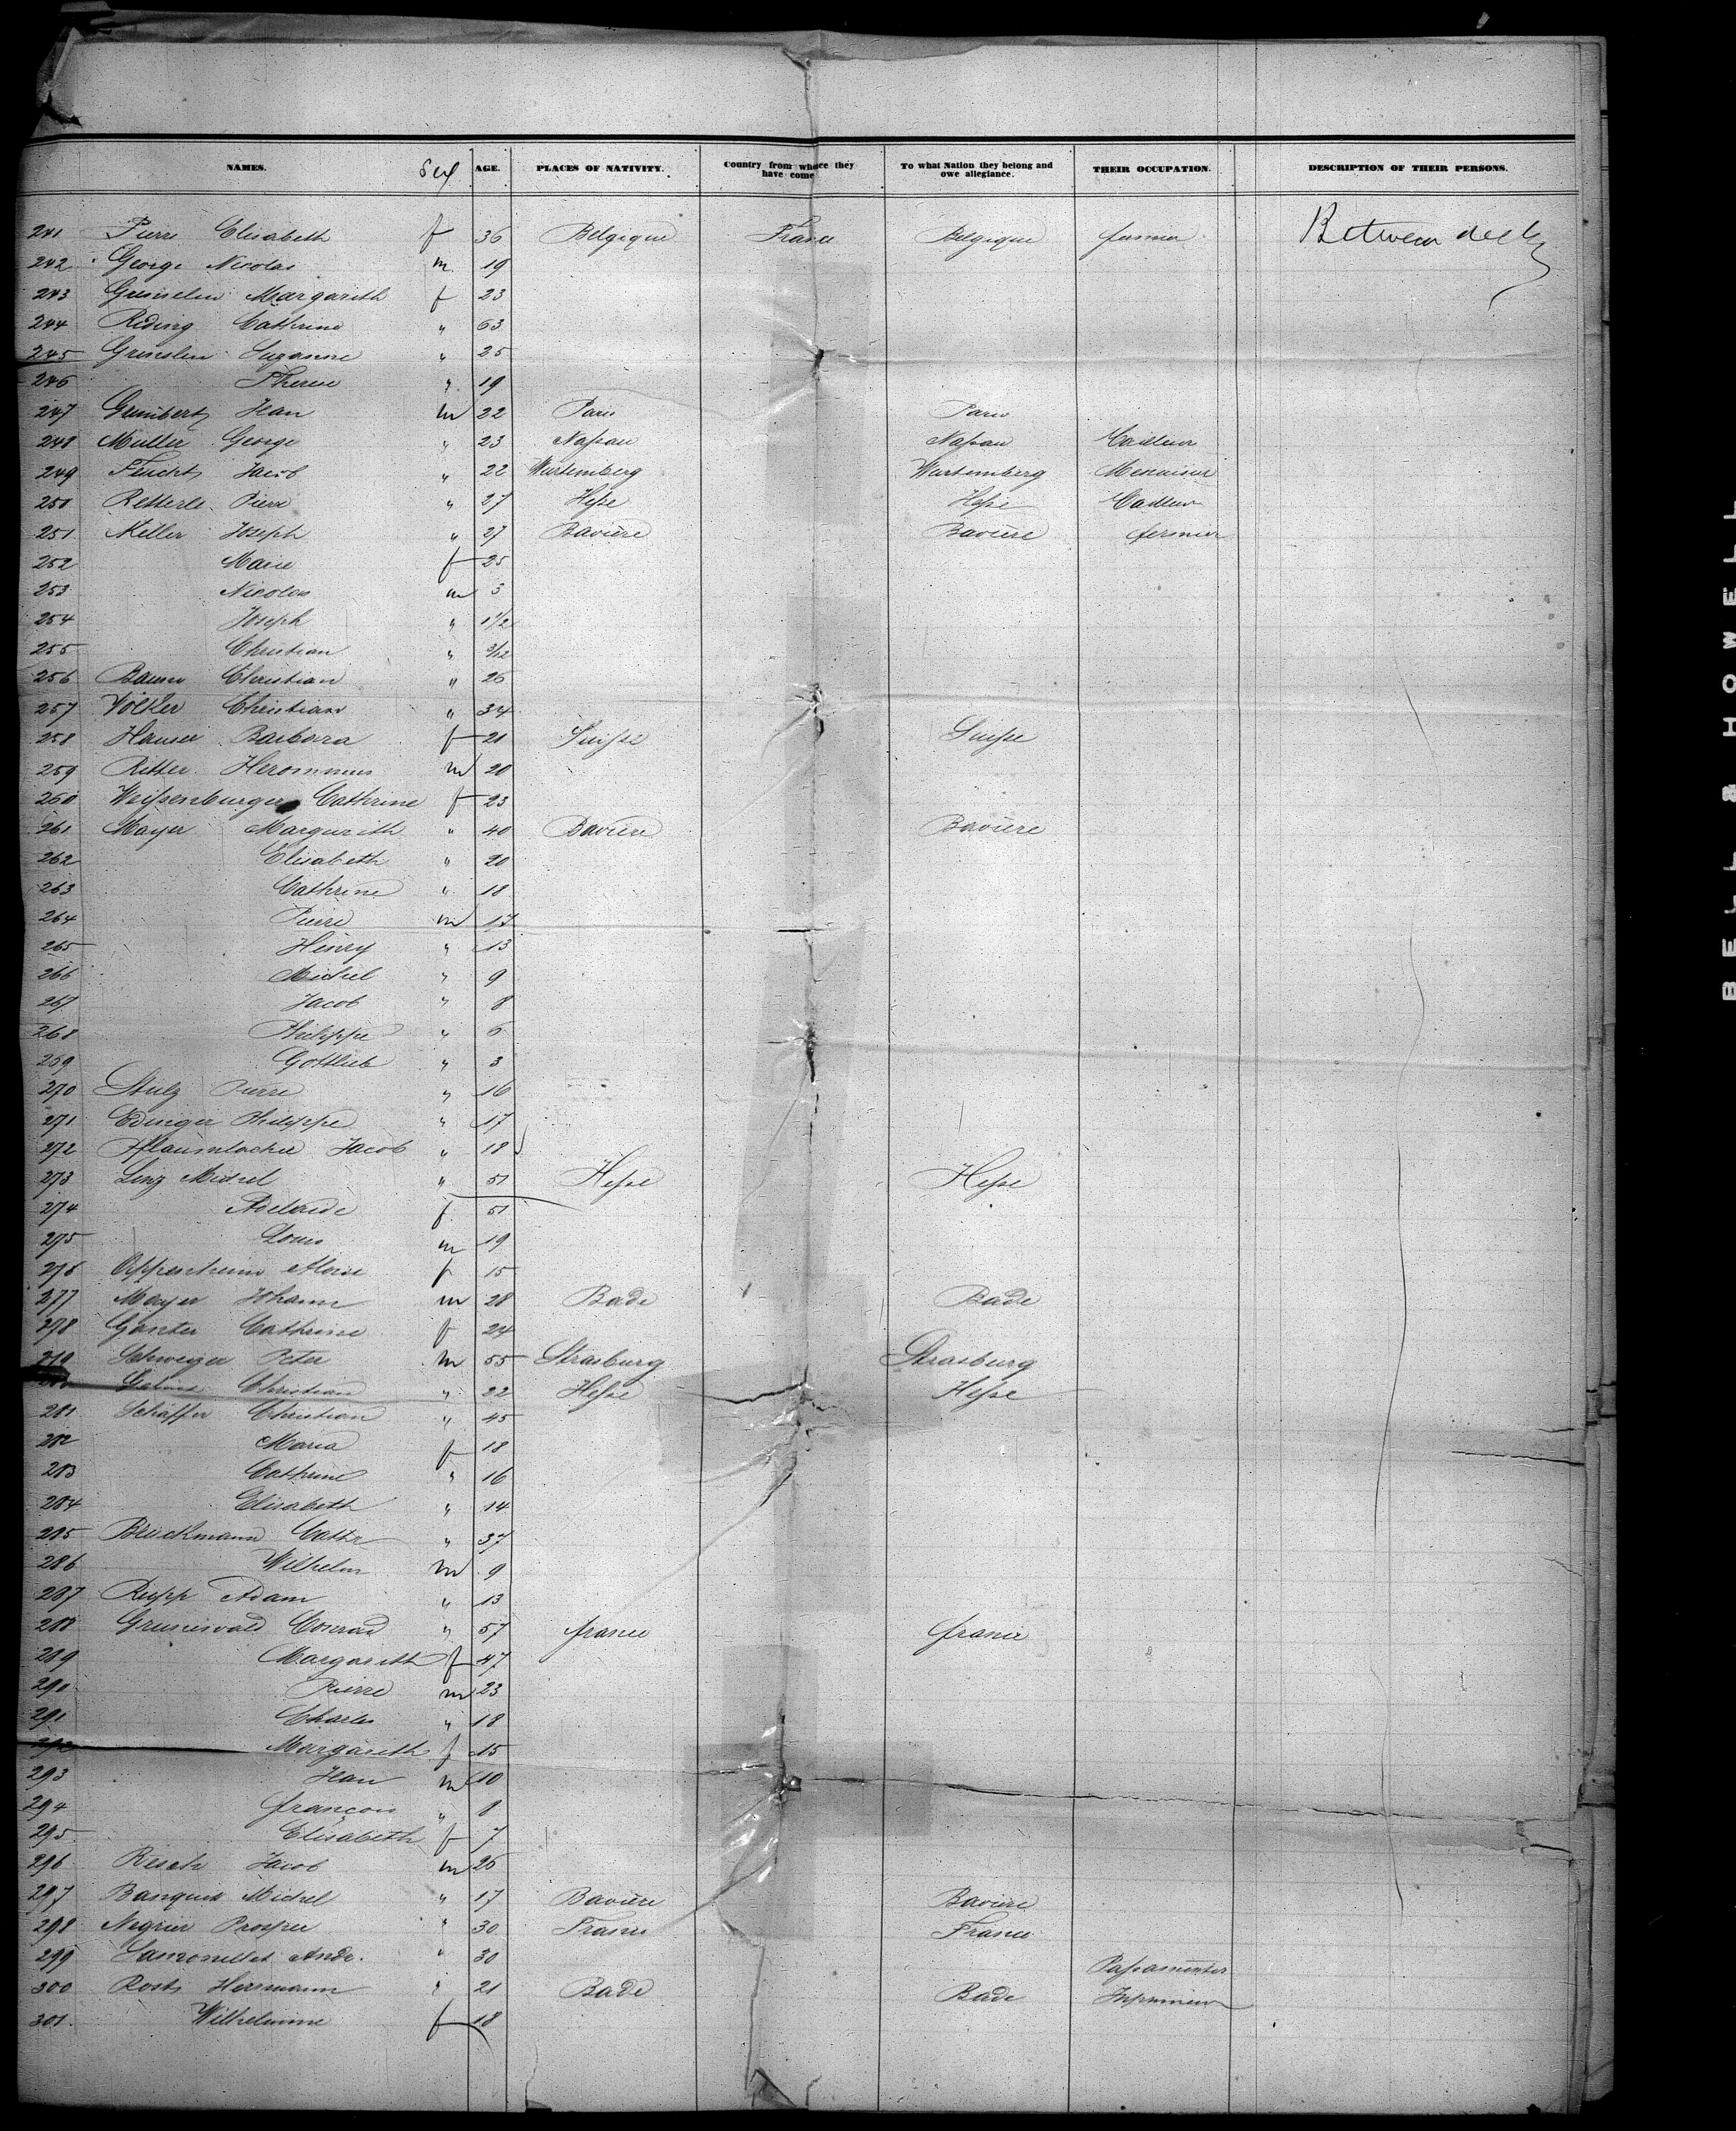 NAMES. Sex AGE. PLACES OF NATIVITY. Country from whence they have come To what Nation they belong and owe allegiance. THEIR OCCUPATION. DESCRIPTION OF THEIR PERSONS.
241 Pierre Elisabeth f 36 Belgique France Belgique Between decks
242 George Nicolas m. 19
243 Margarith f 23
244 Reding Cathrine " 63
245 Suzanne " 25
246 Therese " 19
247 Jean m 22 Paris Paris
248 Muller George " 23 Naſsau Naſsau
249 Feucht Jacob " 22 Wurtemberg Wurtemberg Menuisier
250 Retterle Pierre " 27 Heſse Heſse
251 Keller Joseph " 27 Bavière Bavière fermier
252 Marie f 25
253 Nicolas m 3
254 Joseph " 1½
255 Christian " 3/12
256 Baum Christian " 26
257 Völker Christian " 34
258 Hauser Barbara f 21 Suiſse Suiſse
259 Ritter m 20
260 Weiſsenburger Cathrine f 23
261 Mayer Margarith " 40 Bavière Bavière
262 Elisabeth " 20
263 Cathrine " 18
264 Pierre m 17
265 Henry " 13
266 Michel " 9
267 Jacob " 8
268 Philippe " 6
269 Gottlieb " 3
270 Stulz Pierre " 16
271 Edinger Philippe " 17
272 Jacob " 18
273 Michel " 51 Heſse Heſse
274 Adelaide f 51
275 Louis m 19
276 Oppenheim f 15
277 Mayer Johann m 28 Bade Bade
278 Ganter Cathrine f 24
279 Schweyer Peter m 55 Strasburg Strasburg
Christian " 22 Heſse Heſse
281 Schäffer Christian " 45
282 Maria f 18
283 Cathrine " 16
284 Elisabeth " 14
285 Brückmann Cathr " 37
286 Wilhelm m 9
287 Rupp Adam " 13
288 Grunewald Conrad " 57 france france
289 Margarith f 47
290 Pierre m 23
291 Charles " 18
292 Margarith f 15
293 Jean m 10
294 françois " 8
295 Elisabeth f 7
296 Resch Jacob m 26
297 Michel " 17 Bavière Bavière
298 Negrier Prosper " 30 France France
299 Andr. " 30 Paſsamentier
300 Rost Hermann " 21 Bade Bade
301. Wilhelmine f 18
BELL & HOWELL